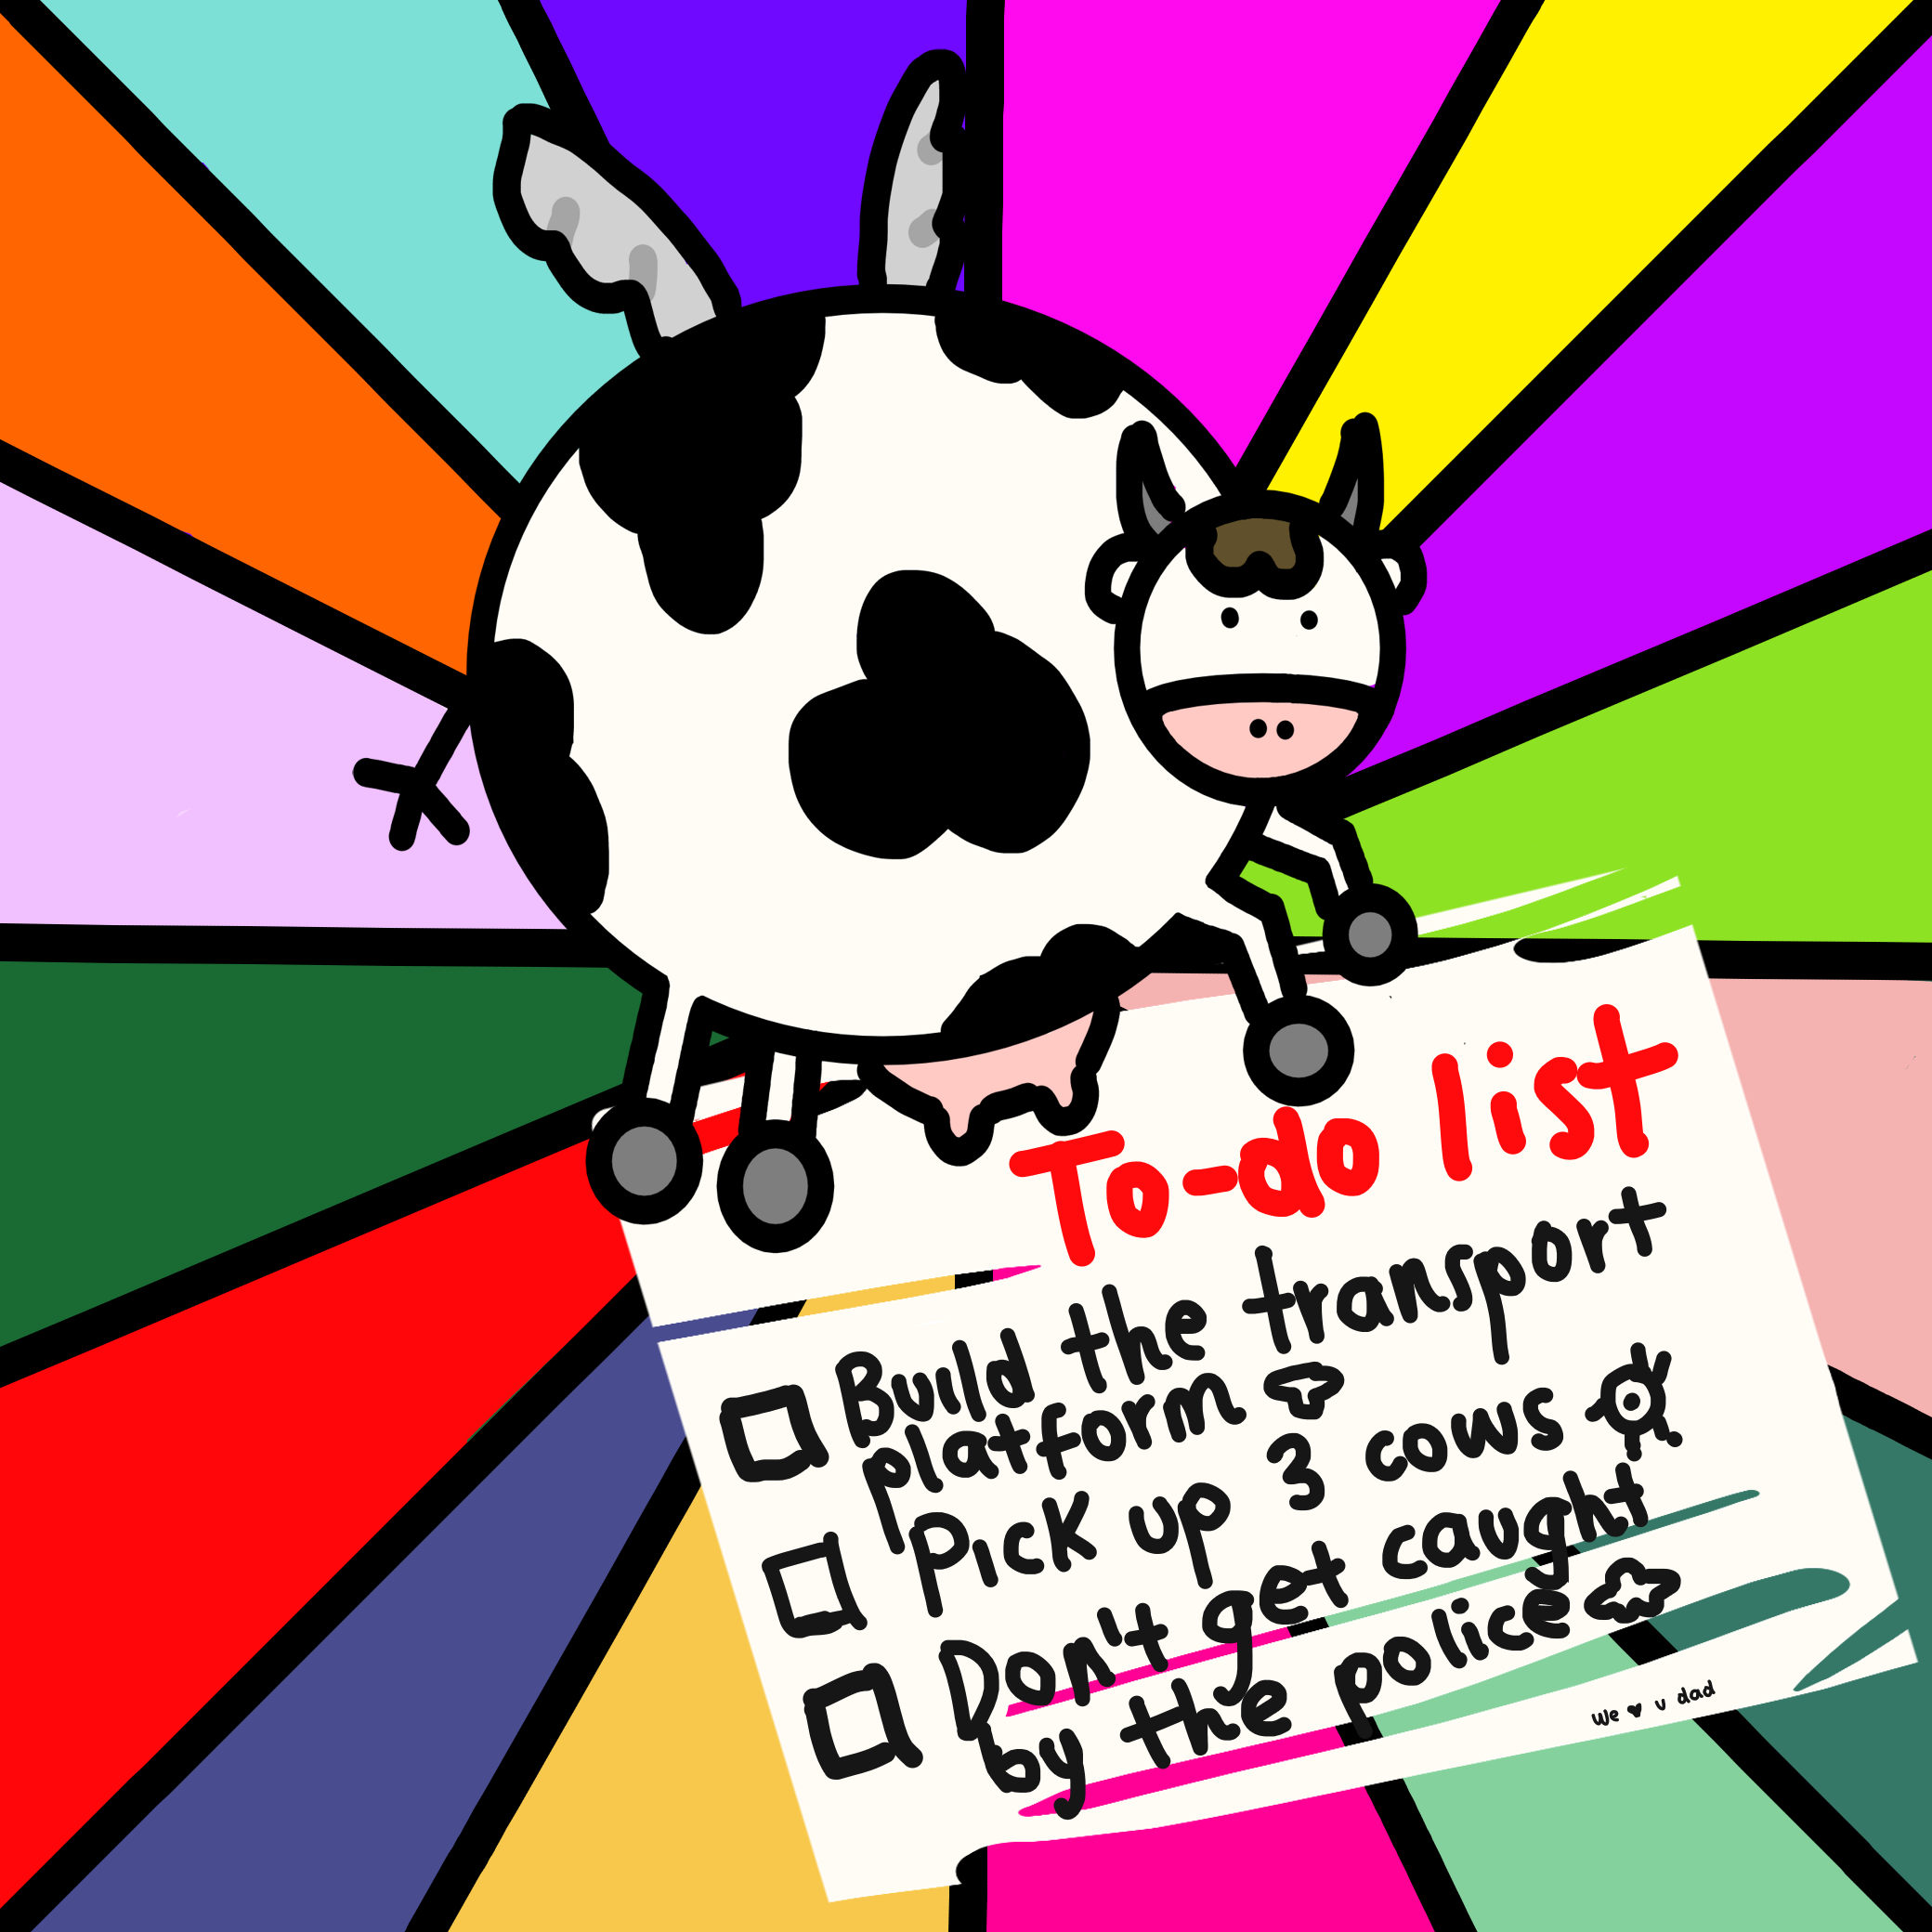 To-do list
Build the transport
platform
Pick up 3 cows
Don't get caught
by the police
We ♥ u dad